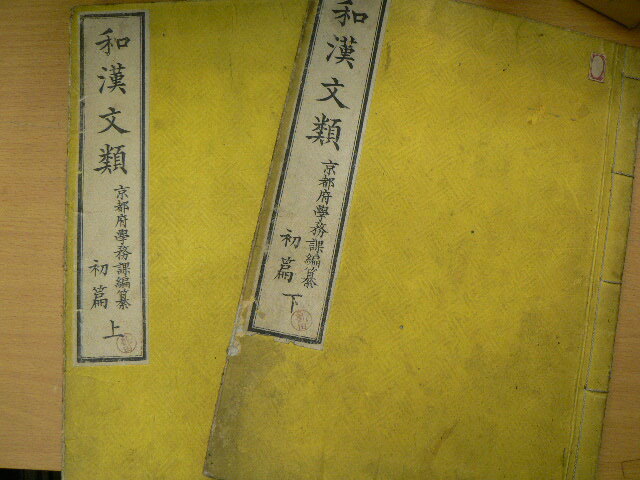 和漢文類
京都府學務課編纂
初篇 上
和漢文類
京都府學務課編纂
初篇 下